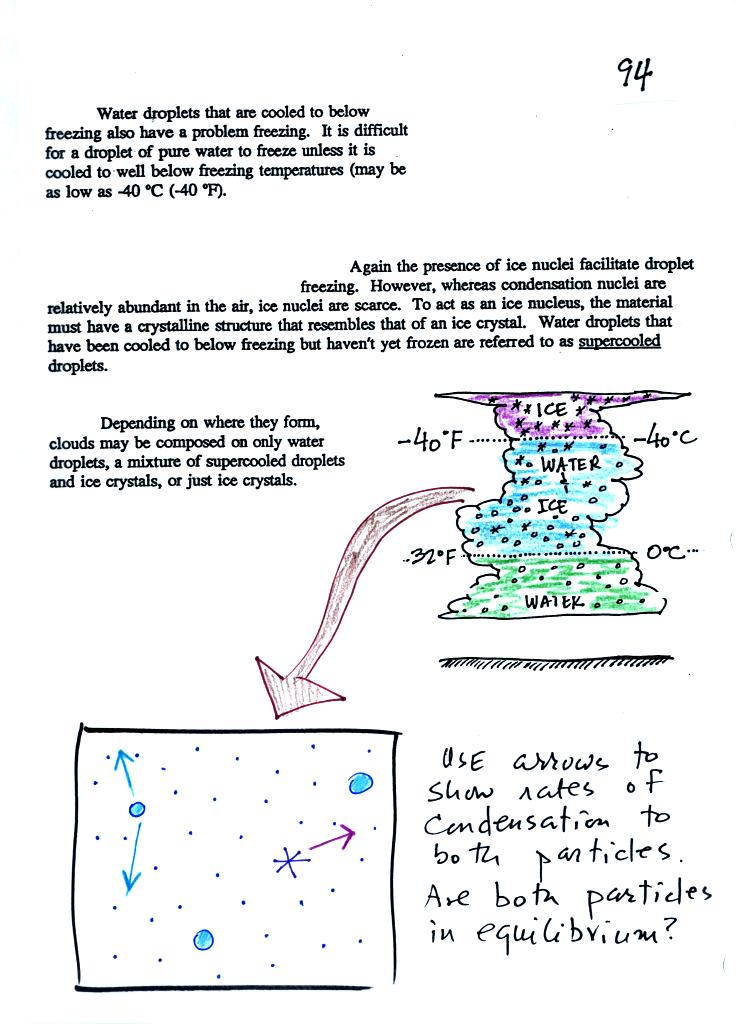 94
Water droplets that are cooled to below
freezing also have a problem freezing. It is difficult
for a droplet of pure water to freeze unless it is
cooled to well below freezing temperatures (may be
as low as -40 °C (-40 °F).
Again the presence of ice nuclei facilitate droplet
freezing. However, whereas condensation nuclei are
relatively abundant in the air, ice nuclei are scarce. To act as an ice nucleus, the material
must have a crystalline structure that resembles that of an ice crystal. Water droplets that
have been cooled to below freezing but haven't yet frozen are referred to as supercooled
droplets.
Depending on where they form,
clouds may be composed on only water
droplets, a mixture of supercooled droplets
and ice crystals, or just ice crystals.
ICE
-40°F -40°C
WATER
+
ICE
32°F 0°C
WATER
USE arrows to
show rates of
condensation to
both particles.
Are both particles
in equilibrium?